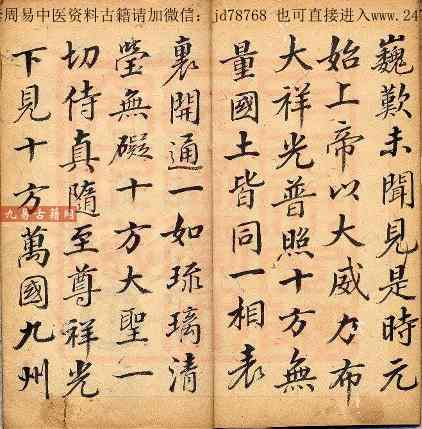 周易中医资料古籍请加微信：jd78768 也可直接进入www.24
巍歎未聞見是時元
始上帝以大威力布
大祥光普照十方無
量國土皆同一相表
裏開通一如琉璃清
瑩無礙十方大聖一
切侍真隨至尊祥光
下見十方萬國九州
九易古籍网